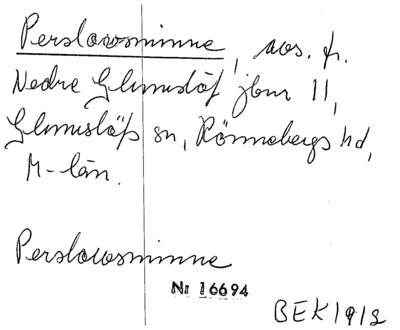 Perslowsminne, avs. fr.
Nedre Glumslöf jbnr 11,
Glumslöfs sn, Rönnebergs hd,
M-län.
Perslowsminne
Nr 16694
BEK 1912